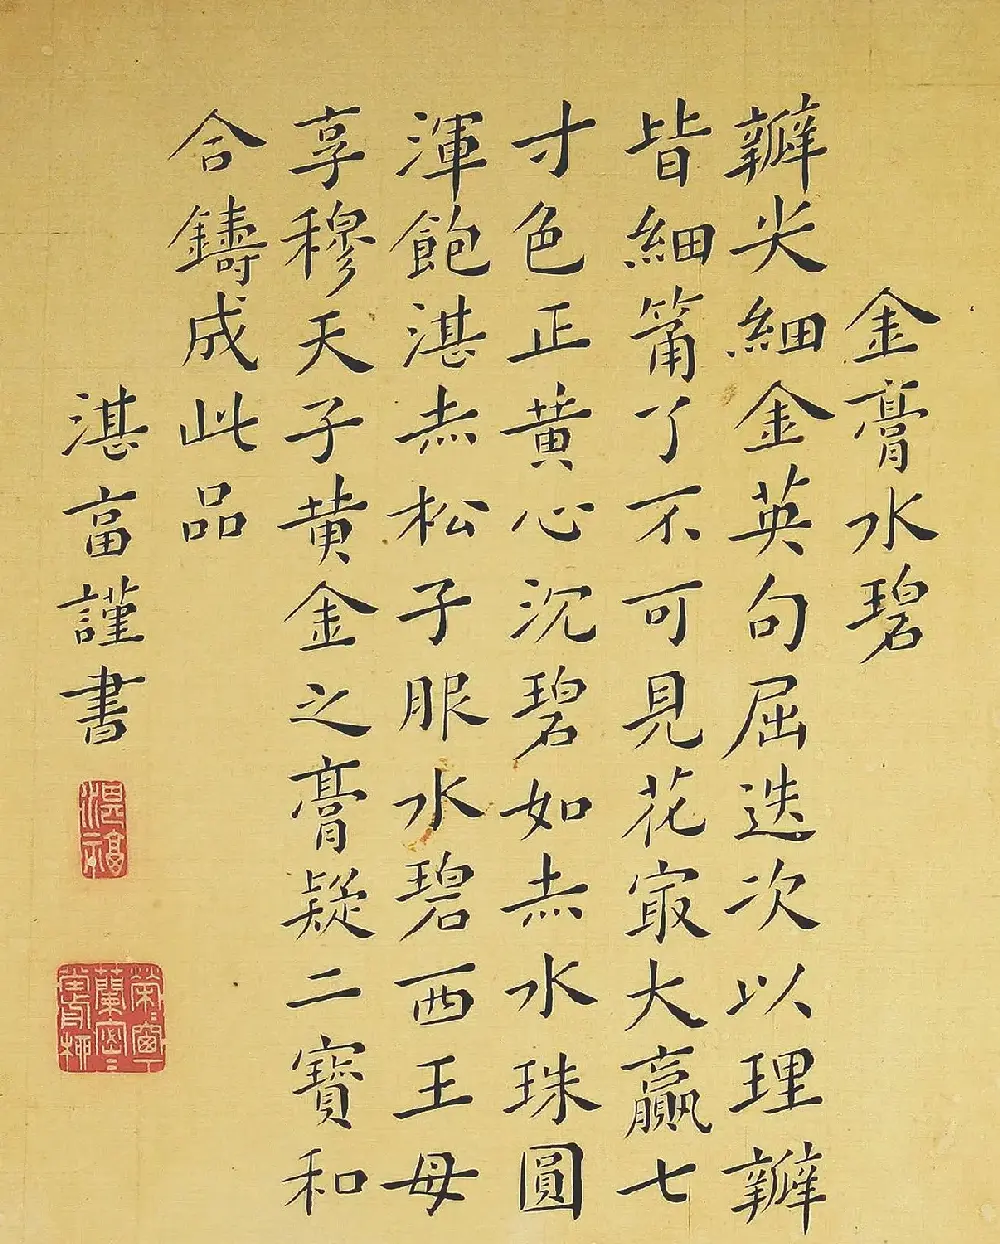 金膏水碧
瓣尖細金英句屈迭次以理瓣
皆細筩了不可見花冣大贏七
寸色正黄心沉碧如赤水珠圓
渾飽湛赤松子服水碧西王母
享穆天子黄金之膏疑二寶和
合鑄成此品
湛富謹書
湛福